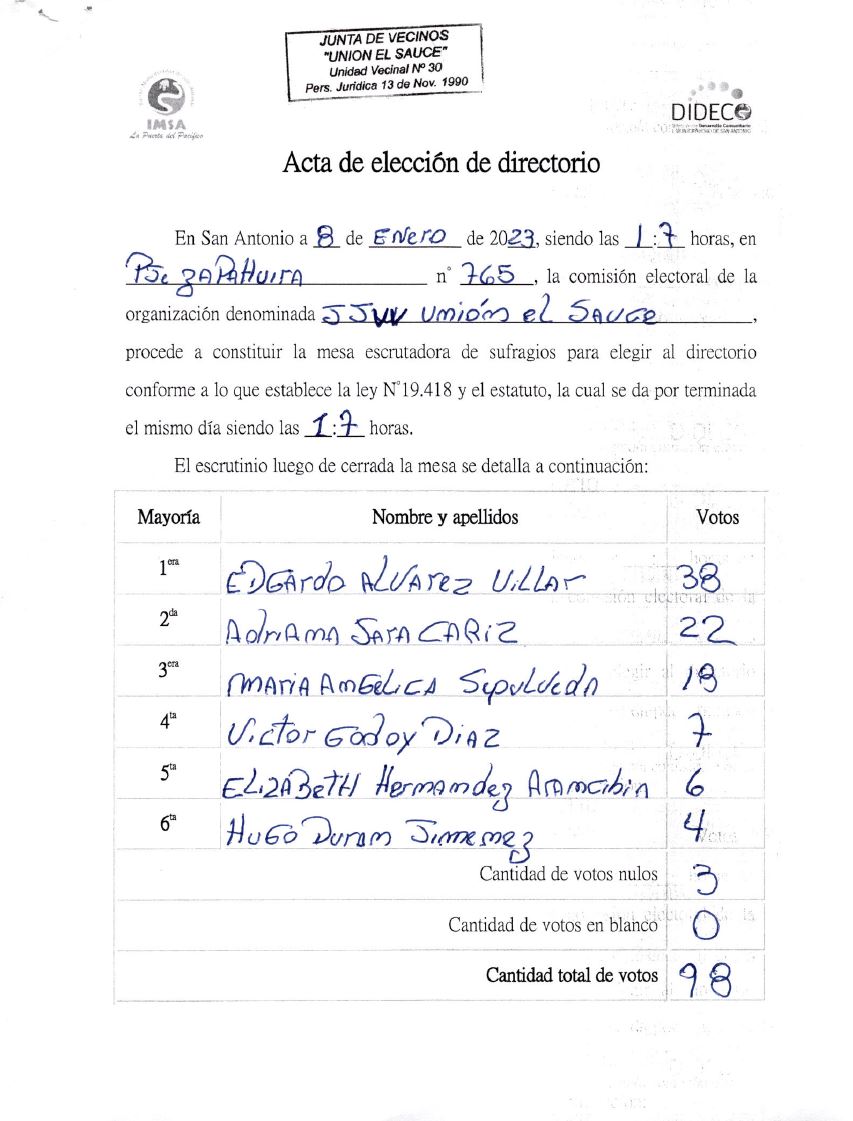 JUNTA DE VECINOS
"UNION EL SAUCE"
Unidad Vecinal Nº 30
Pers. Jurídica 13 de Nov. 1990
IMSA
La Puerta del Pacífico
DIDECO
Acta de elección de directorio
En San Antonio a 8 de ENERO de 2023, siendo las 1:7 horas, en
PSJe ZAPAHUIRA n° 765, la comisión electoral de la
organización denominada JJVV Unión el SAUCE,
procede a constituir la mesa escrutadora de sufragios para elegir al directorio
conforme a lo que establece la ley N°19.418 y el estatuto, la cual se da por terminada
el mismo día siendo las 1:7 horas.
El escrutinio luego de cerrada la mesa se detalla a continuación:
Mayoría Nombre y apellidos Votos
1era EDGArdo ALVArez VillAr 38
2da AdriANA SArA CARiZ 22
3era MARIA ANGELICA SepulvedA 18
4ta Victor Godoy DiAZ 7
5ta ELIZABETH HerNANdez ArANCibiA 6
6ta HUGO DurAN JimeNez 4
Cantidad de votos nulos 3
Cantidad de votos en blanco 0
Cantidad total de votos 98